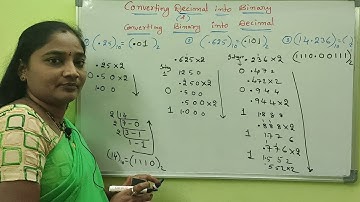 Converting Decimal into Binary
Converting Binary into Decimal
(.25)₁₀ = (.01)₂
.25×2
0.50×2
1.00
② (.625)₁₀ = (.101)₂
.625×2
1 250
.250×2
0.500
.500×2
1 000
③ (14.236)₁₀ = (
(1110.00111)₂
.236×2
0.472
.472×2
0.944
.944×2
1.888
.888×2
1 776
.776×2
1.552
.552×2
2 14
2 7-0
2 3-1
1-1
(14)₁₀ = (1110)₂